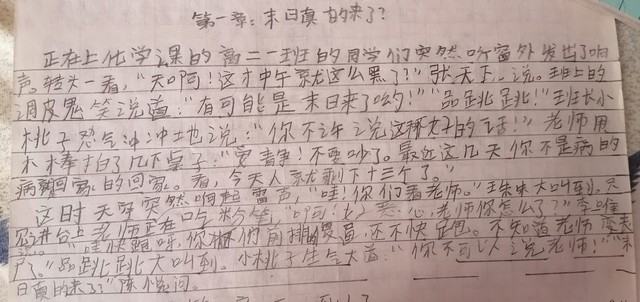 第一章：末日真的来了？
正在上化学课的高二一班的同学们突然听窗外发出了响
声。转头一看，"天啊！这才中午就这么黑了？"张天下说。班上的
调皮鬼笑说道："有可能是末日来了哟！""品跳跳！"班长小
桃子怒气冲冲地说："你不许说这种女子的话！"老师用
木棒拍了几下桌子："安静！不要吵了。最近这几天你不是病的
病就回家的回家。看，今天人就剩下十三个了。"
这时天空突然响起雷声，"哇！你们看老师。"大叫到。
讲台上老师正在吃粉笔，"啊！心，老师你怎么了？"李
"哇快跟呀，你们前排的傻逼，还不快跑。不知道老师变丧
尸。"品跳跳大叫到。小桃子生气大道："你不可以说老师！""末
日真的来了？"陈悦问。